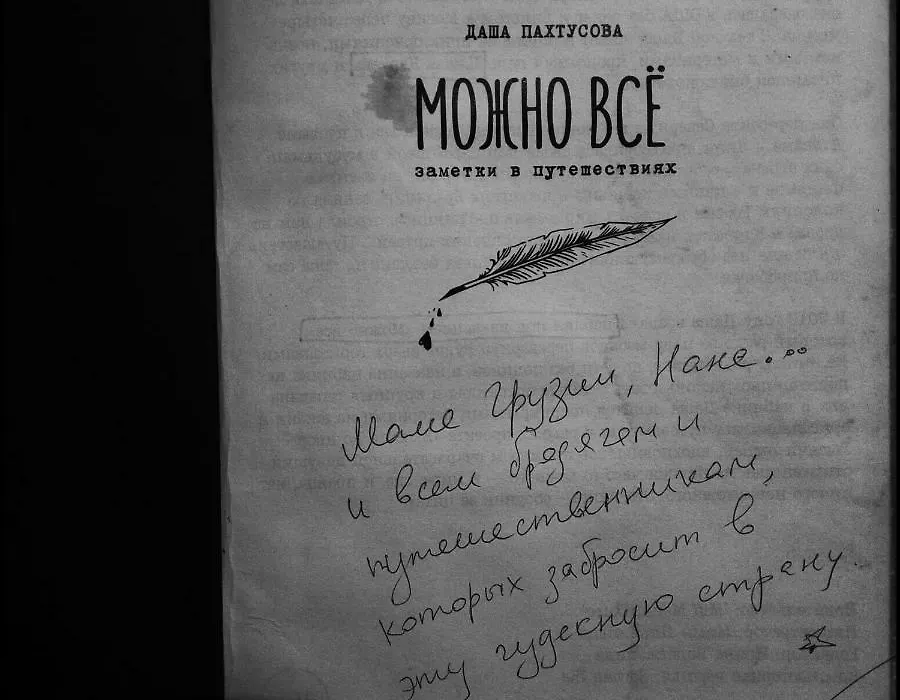 ДАША ПАХТУСОВА
МОЖНО ВСЁ
заметки в путешествиях
Маме Грузии, Нане...
и всем бродягам и
путешественникам,
которых забросит в
эту чудесную страну.